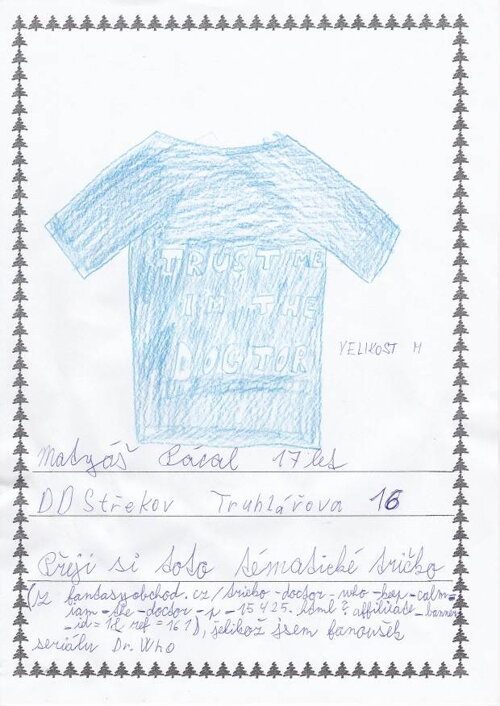 TRUST ME
IM THE
DOCTOR
VELIKOST M
Matyáš Pácal 17 let
DD Střekov Truhlářova 16
Přeji si toto tématické tričko
(z fantasyobchod.cz/tricko-doctor-who-kep-calm-
iam-the-doctor-p-15425.html?affiliate_banner
_id=1&ref=161), jelikož jsem fanoušek
seriálu Dr. Who